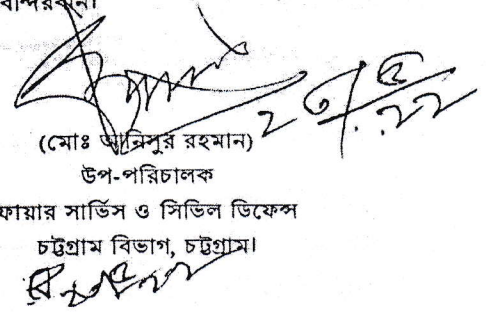 বান্দরবান।
২৩/৫.২২
(মোঃ আনিসুর রহমান)
উপ-পরিচালক
ফায়ার সার্ভিস ও সিভিল ডিফেন্স
চট্টগ্রাম বিভাগ, চট্টগ্রাম।